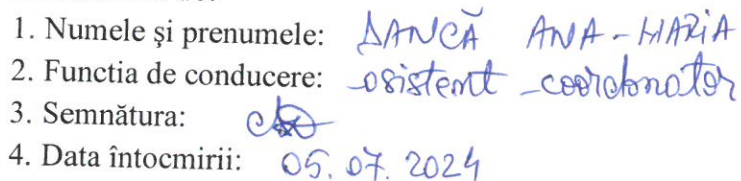 1. Numele şi prenumele: DANCĂ ANA-MARIA
2. Functia de conducere: asistent - coordonator
3. Semnătura:
4. Data întocmirii: 05.07.2024